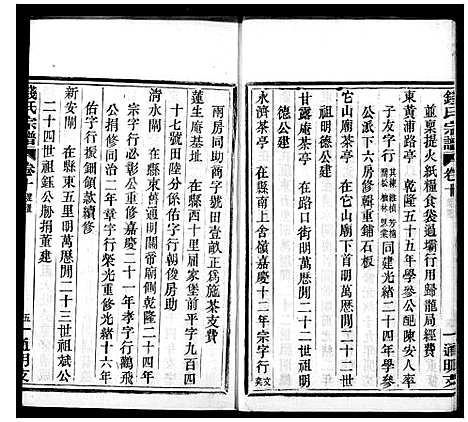 錢氏宗譜 卷十
並稟提火紙糧食袋過壩行用歸龍局經費
東黃浦路亭 乾隆五十五年學參公配陳安人率
子友字行 其棟 維楨 芳楷 關松 樹林 同建光緒二十四年學參
公派下六房修輯重鋪石板
它山廟茶亭 在它山廟下首明萬歷間二十三世
祖明德公建
甘露庵茶亭 在路口街明萬歷間二十三世祖明
德公建
永濟茶亭 在縣南上含嶺嘉慶十二年宗字行 文奕
兩房同助商字號田壹畝正爲施茶支費
蓮生庵基址 在縣西十里屠家堡前平字九百四
十七號田陸分係佑字行朝俊房助
清水閘 在縣東舊通明關帝廟側乾隆二十四年
佾字行必彰公重修嘉慶二十一年孝字行鶴飛
公捐修同治二年章字行榮光重修光緒十六年
佑字行振鈿領款續修
新安閘 在縣東五里明萬歷間二十三世祖斌公
二十四世祖鈺公脩捐董建
錢氏宗譜 卷十
五一通明支